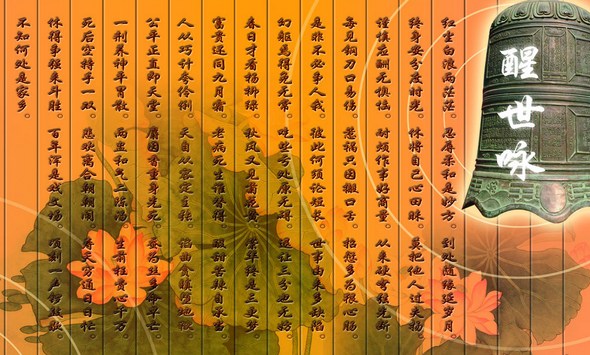 醒世咏
红尘白浪两茫茫。忍辱柔和是妙方。到处随缘延岁月。
终身安分度时光。休将自己心田昧。莫把他人过失扬。
谨慎应酬无懊恼。耐烦作事好商量。从来硬弩弦先断。
每见钢刀口易伤。惹祸只因搬口舌。招愆多为狠心肠。
是非不必争人我。彼此何须论短长。世事由来多缺陷。
幻躯焉得免无常。吃些亏处原无碍。退让三分也无妨。
春日才看杨柳绿。秋风又见菊花黄。荣华终是三更梦。
富贵还同九月霜。老病死生谁替得。酸甜苦辣自承当。
人从巧计夸伶俐。天自从容定主张。谄曲贪嗔堕地狱。
公平正直即天堂。麝因香重身先死。蚕为丝多命早亡。
一剂养神平胃散。两盅和气二陈汤。生前枉费心千万。
死后空持手一双。悲欢离合朝朝闹。寿夭穷通日日忙。
休得争强来斗胜。百年浑是戏文场。顷刻一声锣鼓歇。
不知何处是家乡。